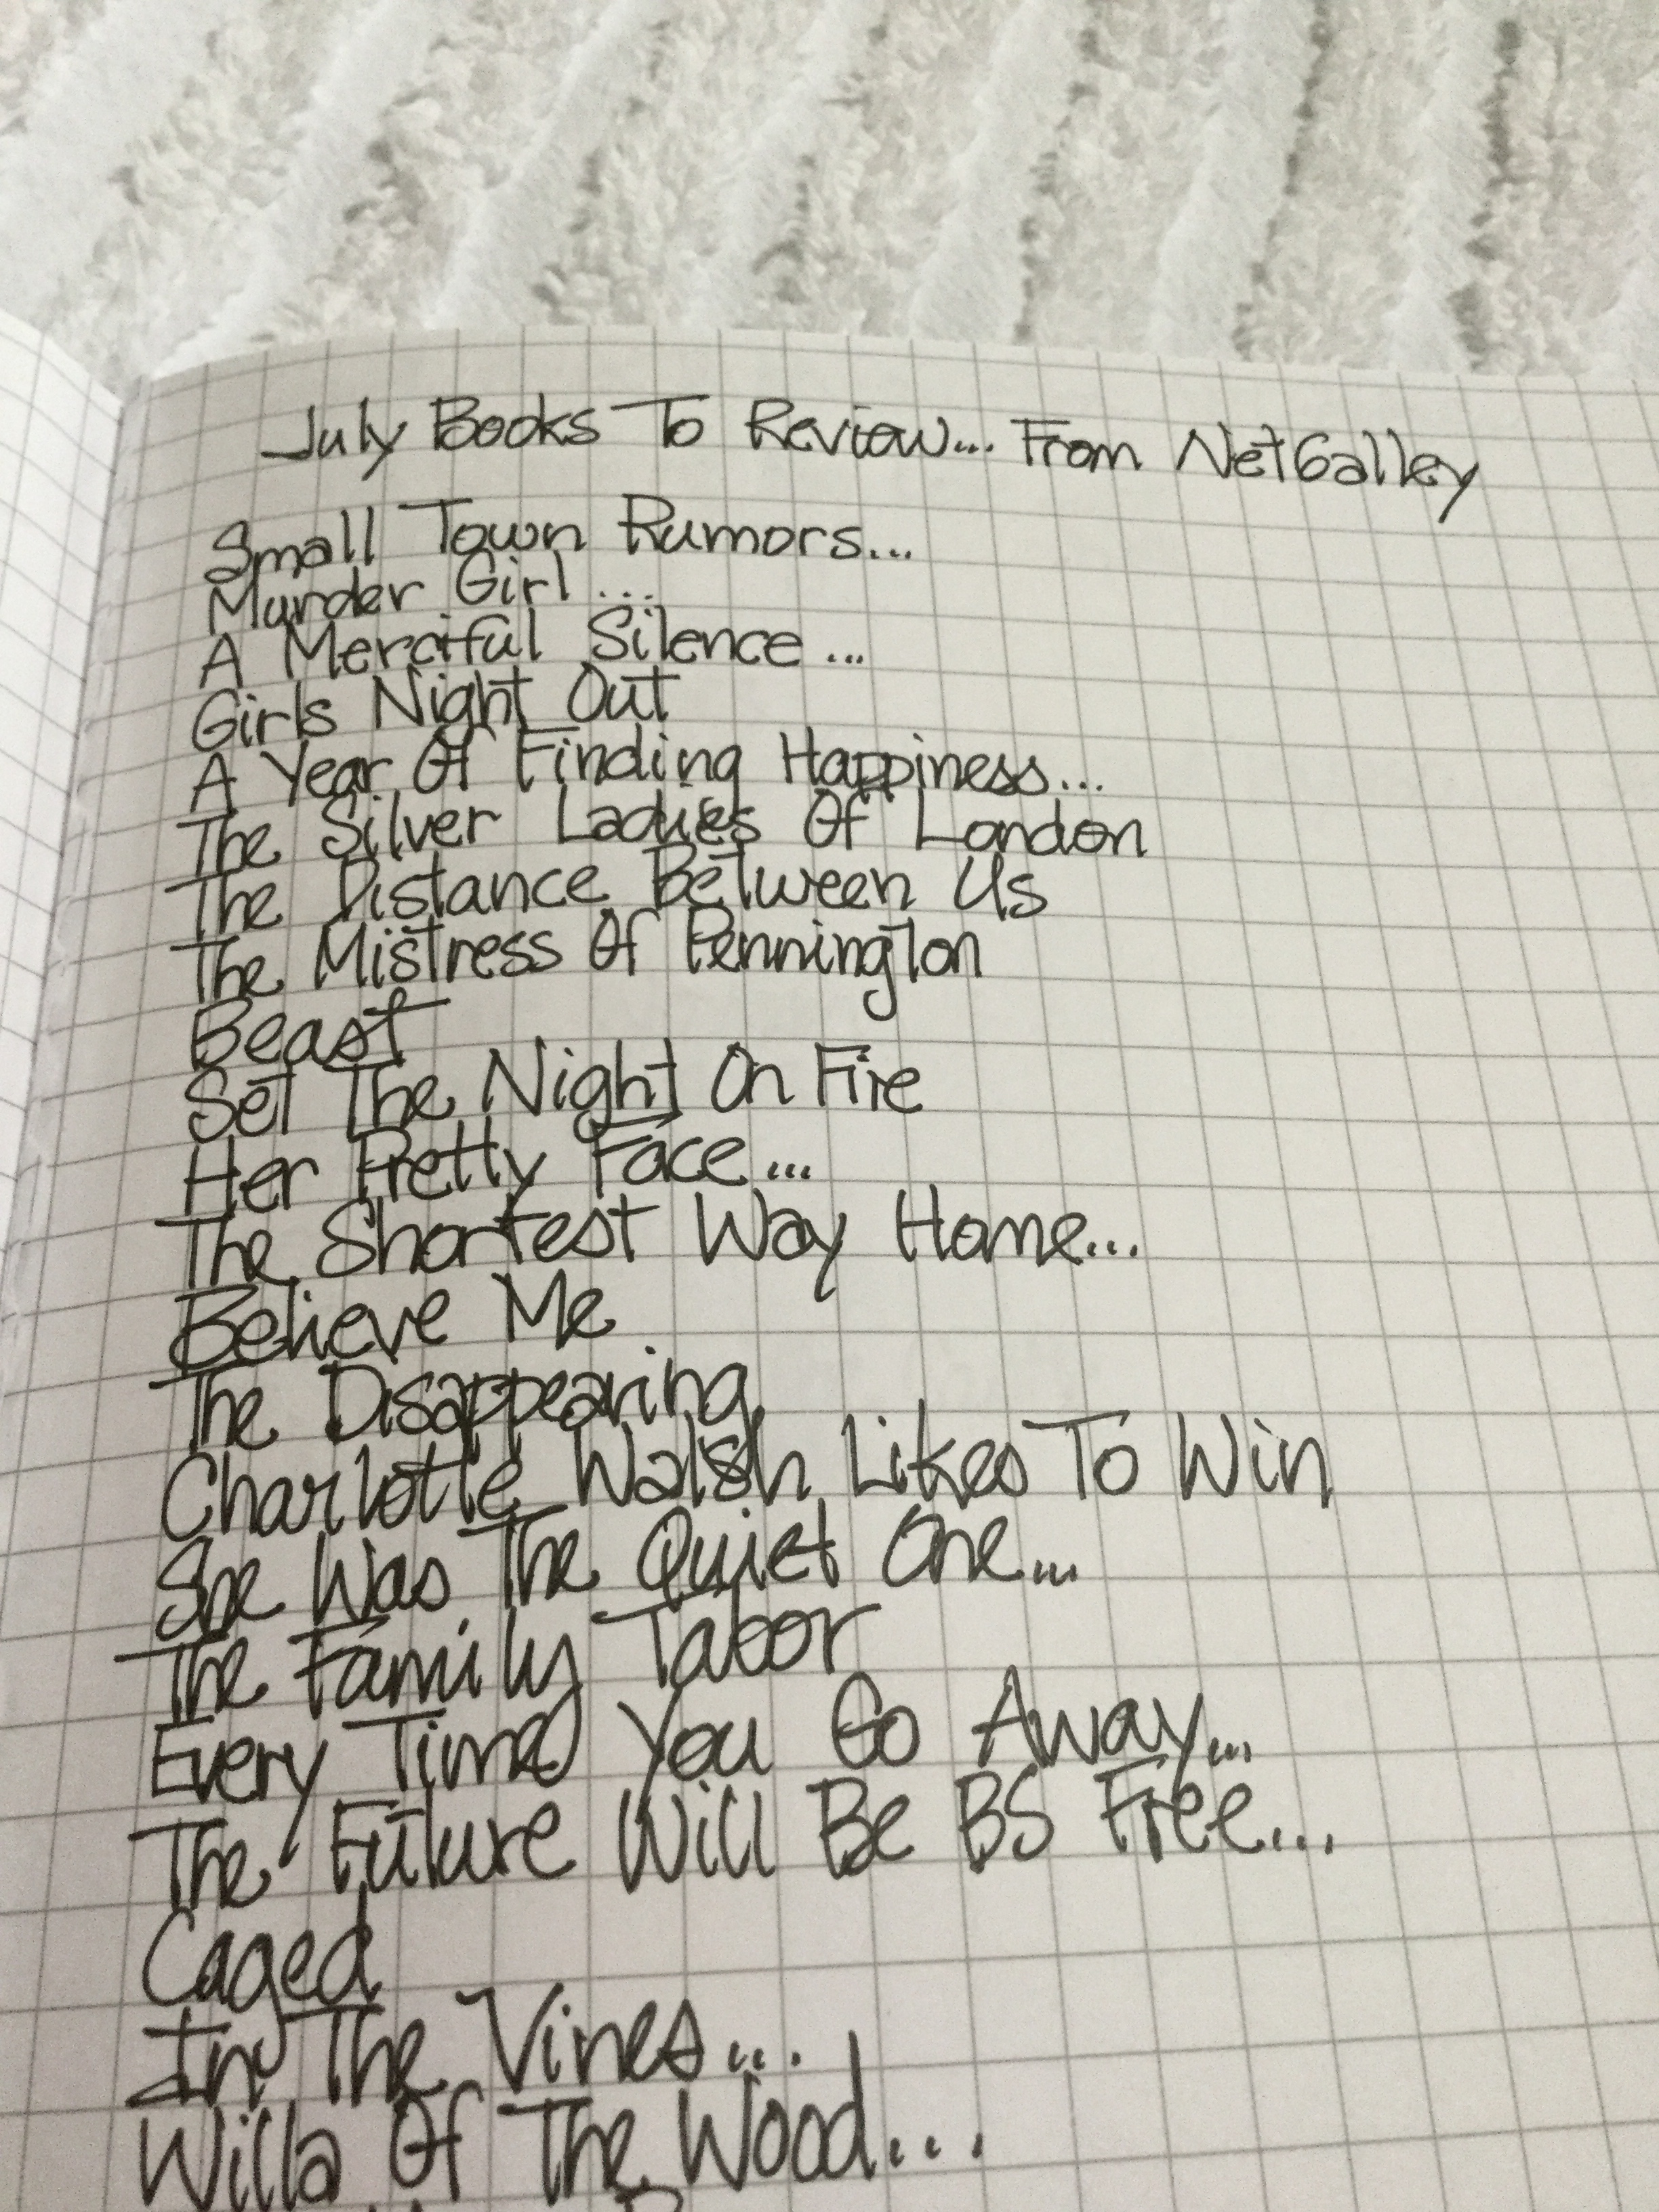 July Books To Review... From NetGalley
Small Town Rumors...
Murder Girl ...
A Merciful Silence ...
Girls Night Out
A Year Of Finding Happiness...
The Silver Ladies Of London
The Distance Between Us
The Mistress Of Pennington
Beast
Set The Night On Fire
Her Pretty Face...
The Shortest Way Home...
Believe Me
The Disappearing
Charlotte Walsh Likes To Win
She Was The Quiet One...
The Family Tabor
Every Time You Go Away...
The Future Will Be BS Free...
Caged
In The Vines...
Willa Of The Wood...